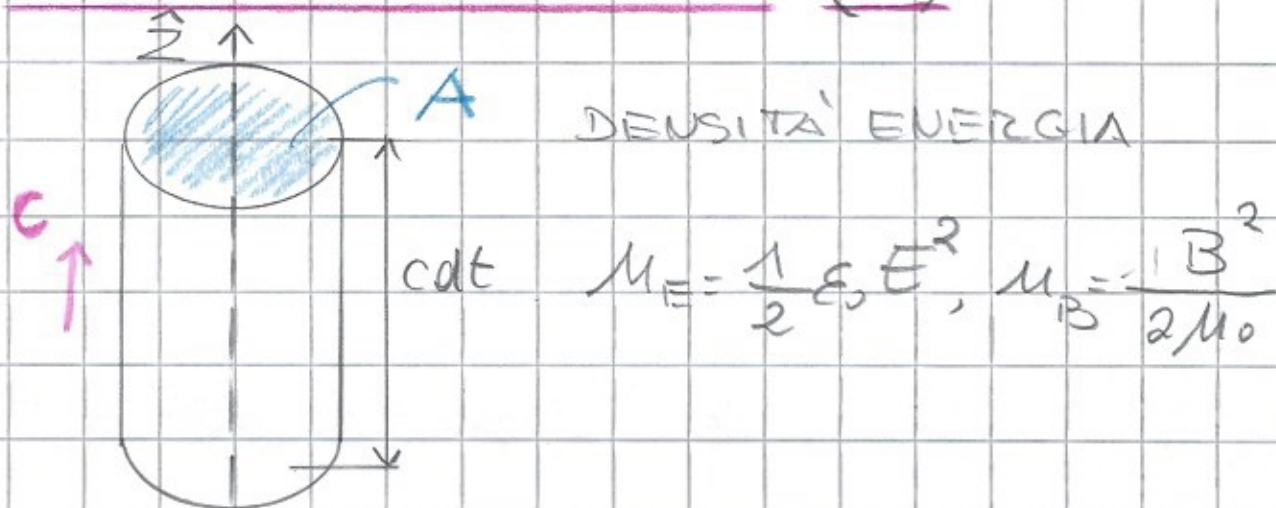 ẑ
A
DENSITÀ ENERGIA
c
cdt
u_E = 1/2 ε₀ E², u_B = B²/2μ₀